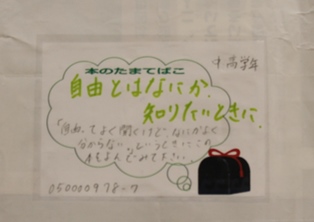 中高学年
本のたまてばこ
自由とはなにか、
知りたいときに
「自由」ってよく聞くけど、なにかよく
分からない。というときにこの
本をよんでみて下さい。
050000978-7